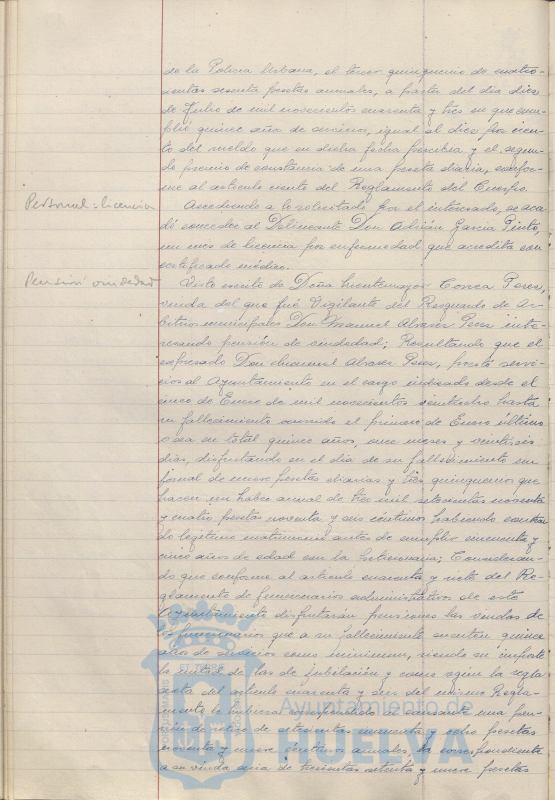 de la Policia Urbana, el tercer quinquenio de cuatro-
cientas sesenta pesetas anuales, a partir del dia diez
de Julio de mil novecientos cuarenta y tres en que cum-
plió quince años de servicios, igual al diez por cien-
to del sueldo que en dicha fecha percibia, y el segun-
do premio de constancia de una peseta diaria, confor-
me al articulo ciento del Reglamento del Cuerpo.
Personal = licencia
Accediendo a lo solicitado por el interesado, se acor-
dó conceder al Delineante Don Adrián Garcia Pinto,
un mes de licencia por enfermedad que acredita con
certificado médico.
Pensión viudedad
Visto escrito de Doña Correa Perez,
viuda del que fué Vigilante del Resguardo de Ar-
bitrios municipales Don Manuel Alvarez Perez inte-
resando pensión de viudedad; Resultando que el
expresado Don Manuel Alvarez Perez, prestó servi-
cios al Ayuntamiento en el cargo indicado desde el
cinco de Enero de mil novecientos veintiocho hasta
su fallecimiento ocurrido el primero de Enero último
o sea un total quince años, once meses y veintiseis
dias, disfrutando en el dia de su fallecimiento un
jornal de nueve pesetas diarias y tres quinquenios que
hacen un haber anual de tres mil setecientas noventa
y cuatro pesetas noventa y seis céntimos habiendo contrai-
do legitimo matrimonio antes de cumplir cincuenta y
cinco años de edad con la Consideran-
do que conforme al articulo cuarenta y siete del Re-
glamento de funcionarios administrativos de este
Ayuntamiento disfrutarán pensiones las viudas de
los funcionarios que a su fallecimiento cuenten quince
años de servicios como minimum, siendo su importe
la mitad de las de jubilación y como según la regla
sexta del articulo cuarenta y seis del mismo Regla-
mento le hubiera correspondido al causante una pen-
sión de retiro de setecientas cincuenta y ocho pesetas
noventa y nueve céntimos anuales, la correspondiente
a su viuda seria de trescientas setenta y nueve pesetas
Ayuntamiento de
HUELVA